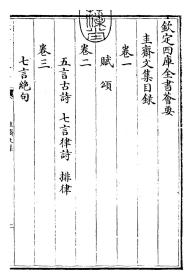 欽定四庫全書薈要
圭齋文集目録
卷一
賦 頌
卷二
五言古詩 七言律詩 排律
卷三
七言絶句